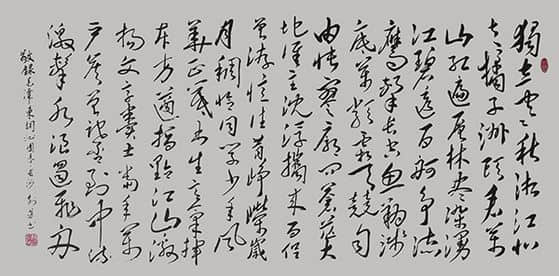 獨立寒秋湘江北
去橘子洲頭看萬
山紅遍層林盡染漫
江碧透百舸爭流
鷹擊長空魚翔淺
底萬類霜天競自
由悵寥廓問蒼茫大
地誰主沈浮攜來百侶
曾游憶往昔崢嶸歲
月稠恰同學少年風
華正茂書生意氣揮
斥方遒指點江山激
揚文字糞土當年萬
戶侯曾記否到中流
擊水浪遏飛舟
敬錄毛澤東詞沁園春長沙